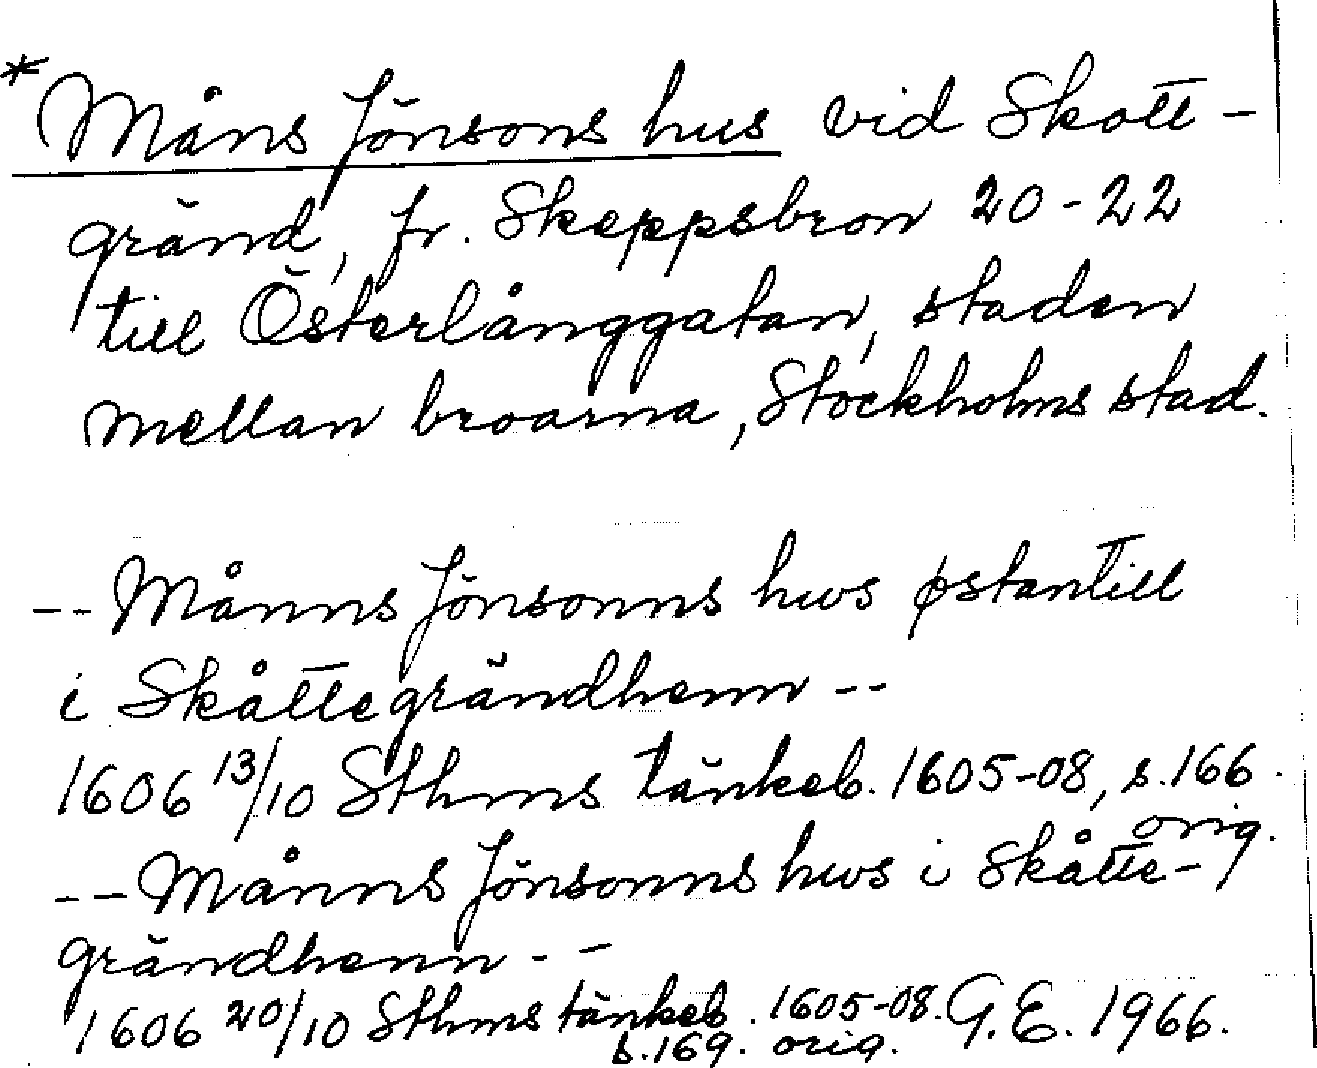 *Måns Jönsons hus vid Skott-
gränd, fr. Skeppsbron 20-22
till Österlånggatan, staden
mellan broarna, Stockholms stad.
-- Månns Jönsonns hws østantill
i Skåttegrändhenn --
1606 13/10 Sthms tänkeb. 1605-08, s. 166.
orig.
-- Månns Jönsonns hws i Skåtte-
grändhenn --
1606 20/10 Sthms tänkeb. 1605-08. G.E. 1966.
s. 169. orig.